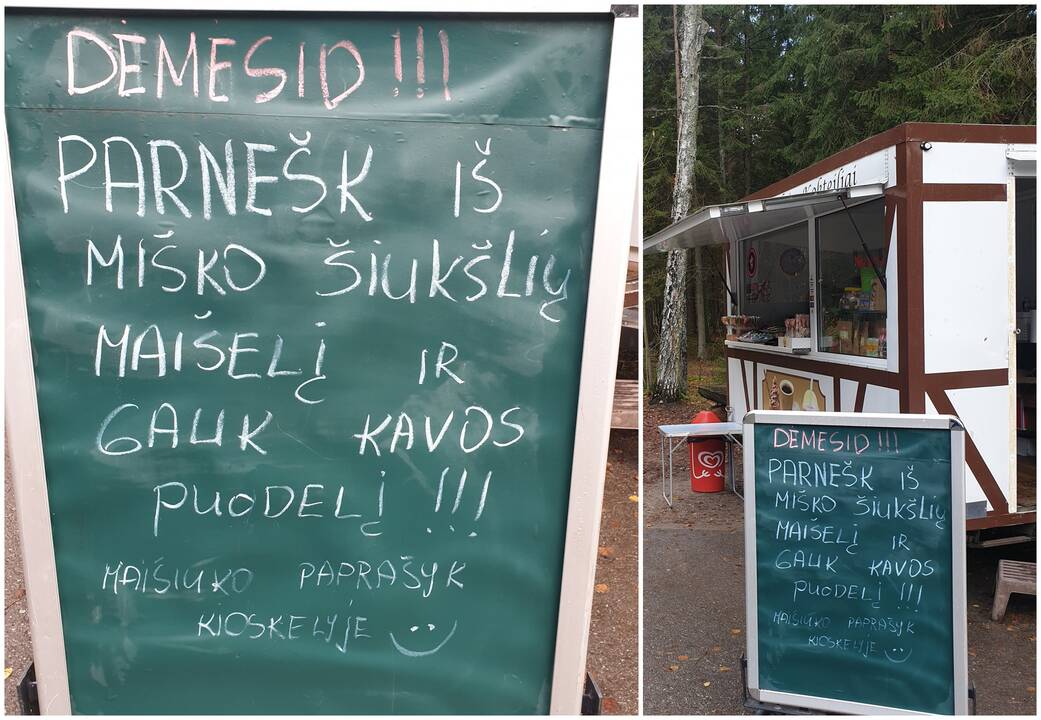 DĖMĖSIO !!!
PARNEŠK IŠ
MIŠKO ŠIUKŠLIŲ
MAIŠELĮ IR
GAUK KAVOS
PUODELĮ !!!
MAIŠIUKO PAPRAŠYK
KIOSKELYJE
Kokteiliai
DĖMĖSIO !!!
PARNEŠK IŠ
MIŠKO ŠIUKŠLIŲ
MAIŠELĮ IR
GAUK KAVOS
PUODELĮ !!!
MAIŠIUKO PAPRAŠYK
KIOSKELYJE